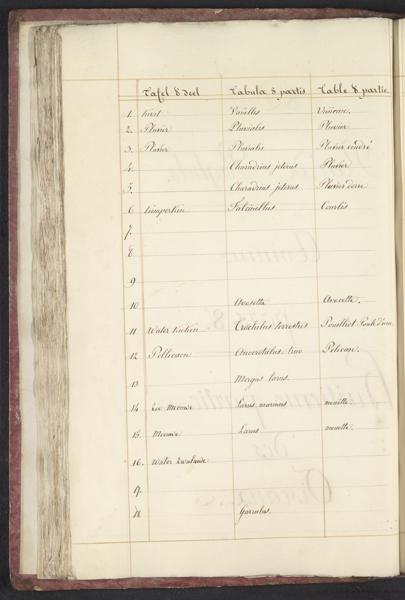 Tafel 8 deel Tabula 8 partis Table 8 partie
1. Kivit Vanellus Vanneau.
2. Pluvier Pluvialis Pluvier
3. Pluvier Pluvialis Pluvier cendré
4. Charadrius Pluvier
5. Charadrius Pluvier doré
6 Falcinellus Courlis
7.
8
9
10 Avosetta Avocette.
11 Water Trochulus terrestris Pouilliot Poule d'eau
12 Pellicaen Onocrotalus Pelican.
13 Mergus larus.
14 Zee Meeuwe Larus marinus mouette.
15. Meeuwe Larus mouette.
16. Water Zwaluwe
17.
18 Garrulus.